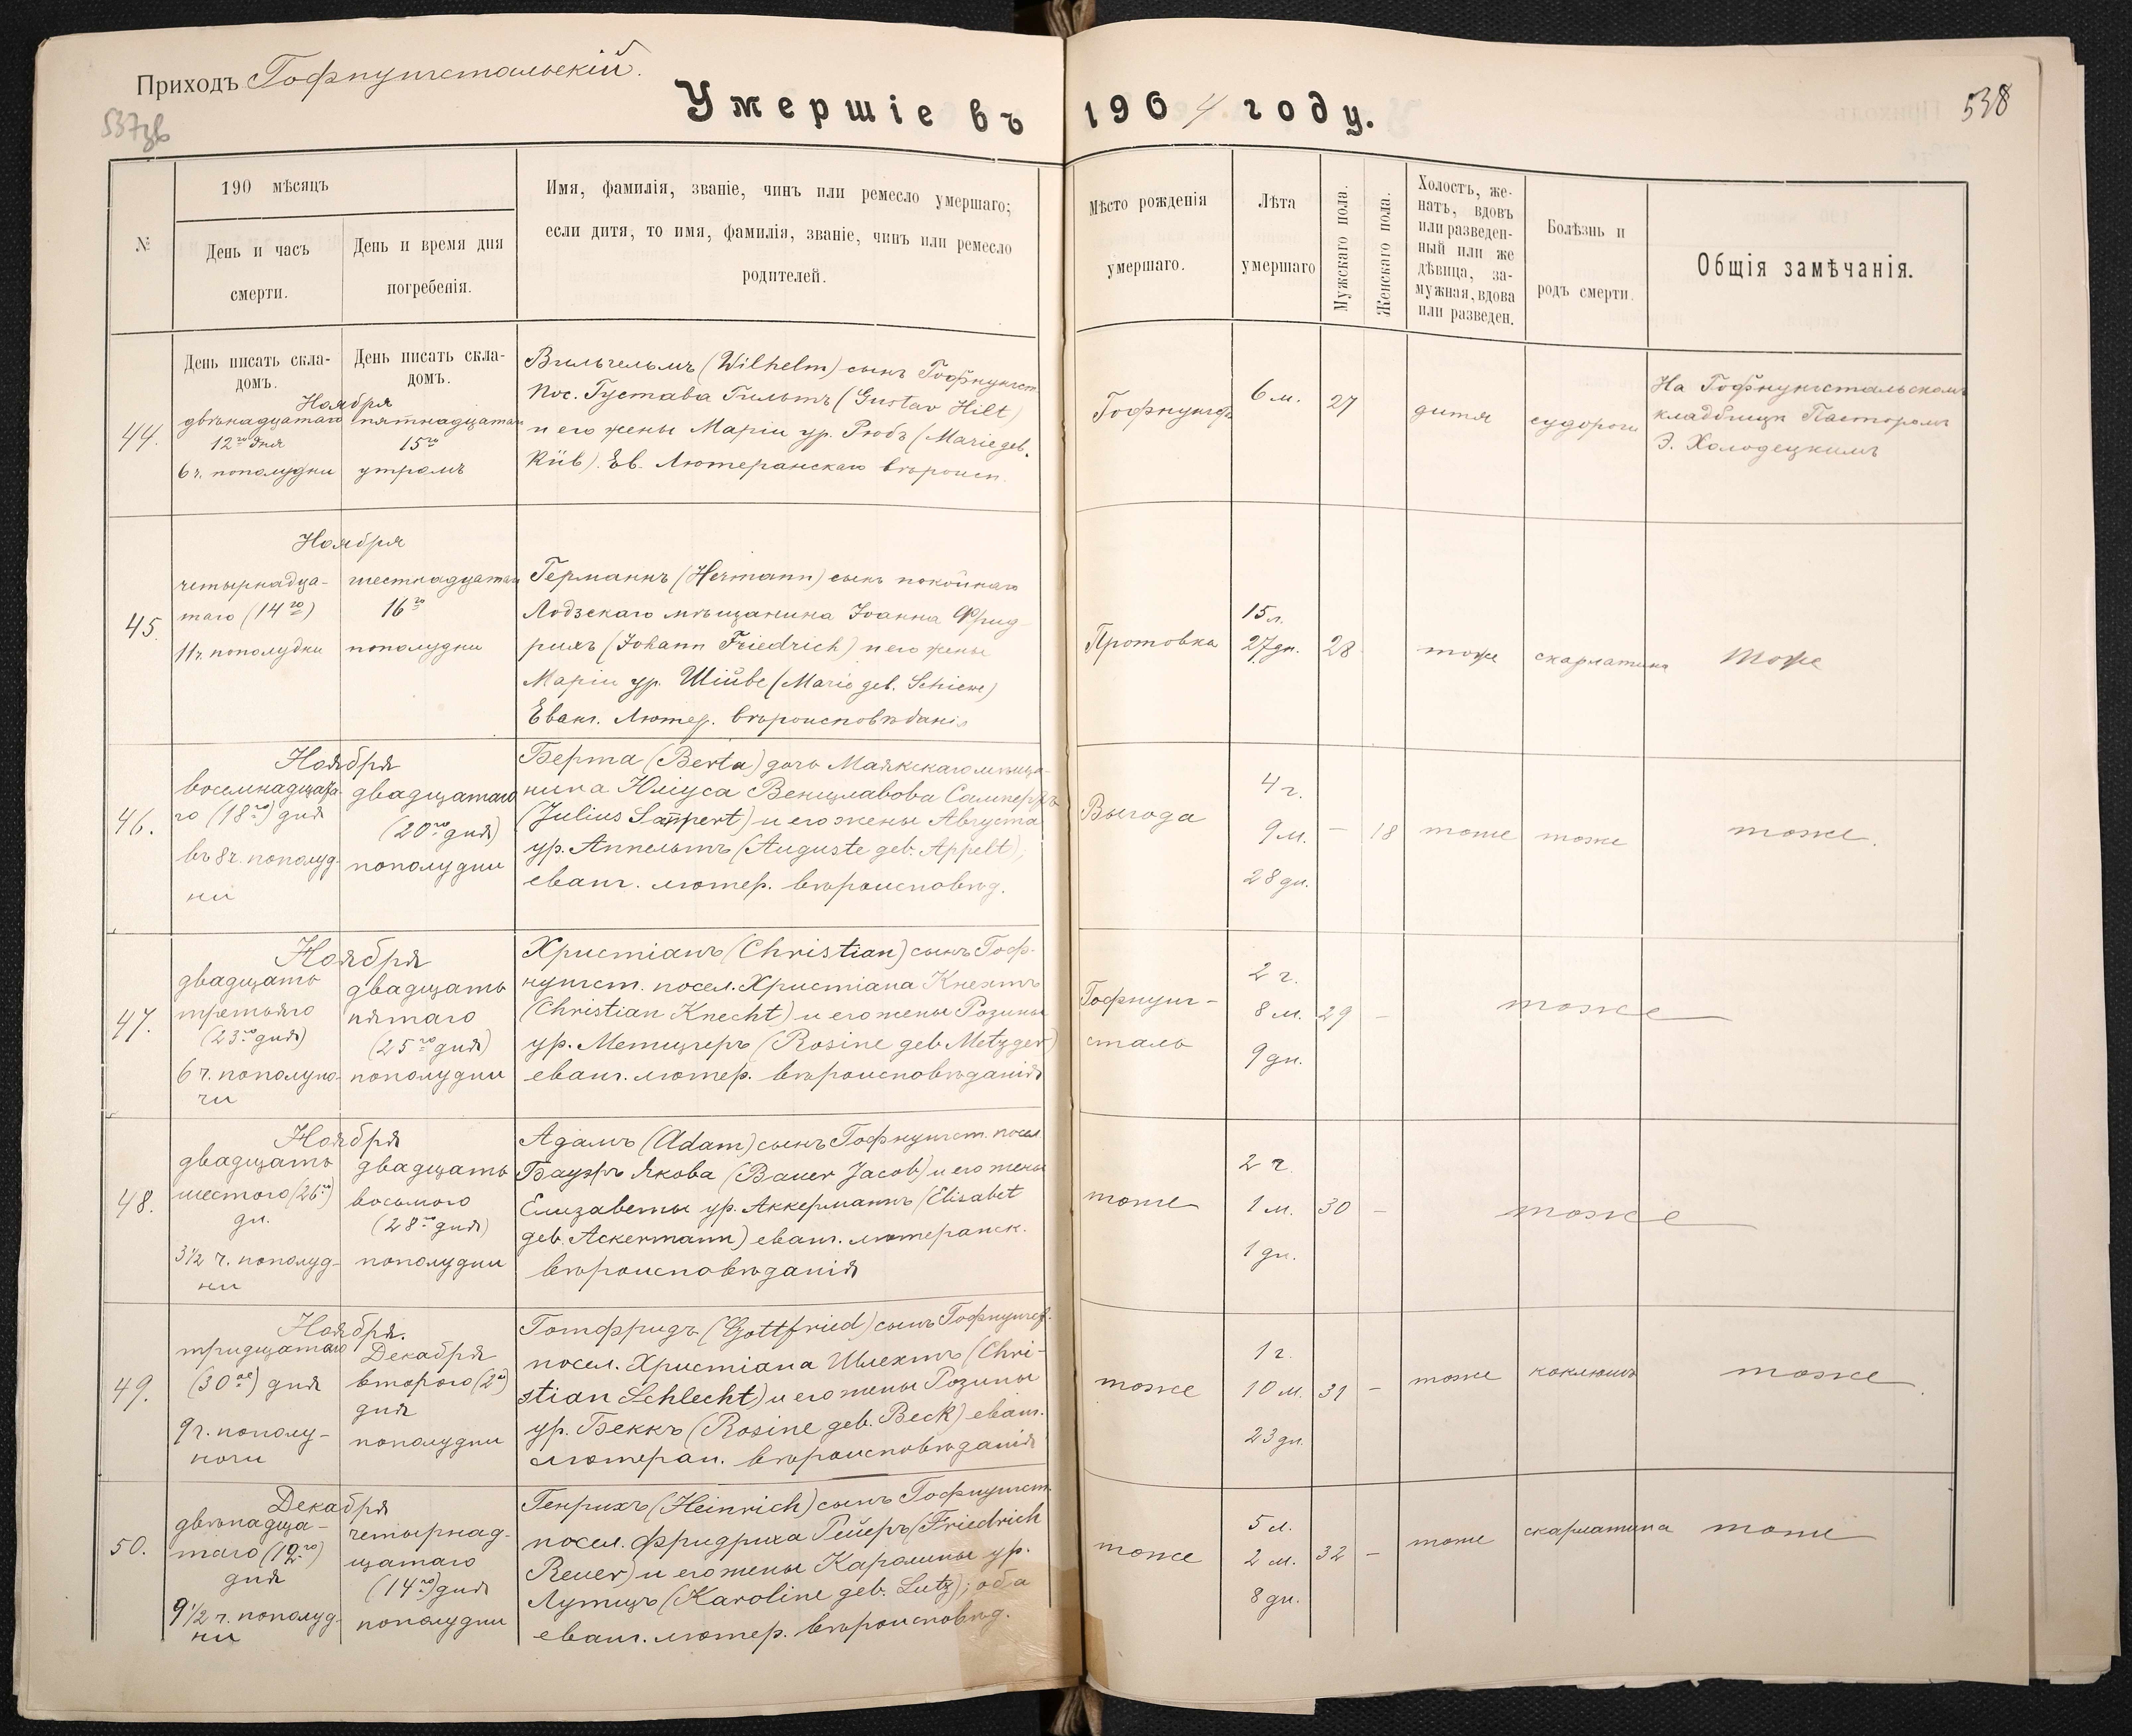 Приходъ Гофнунгстальскій.
537об
Умершіе въ 1904 году.
538
№
190 мѣсяцъ
День и часъ
смерти.
День и время дня
погребенія.
Имя, фамилія, званіе, чинъ или ремесло умершаго;
если дитя, то имя, фамилія, званіе, чинъ или ремесло
родителей.
Мѣсто рожденія
умершаго.
Лѣта
умершаго
Мужскаго пола.
Женскаго пола.
Холостъ, же-
натъ, вдовъ
или разведен-
ный или же
дѣвица, за-
мужная, вдова
или разведен.
Болѣзнь и
родъ смерти.
Общія замѣчанія.
День писать скла-
домъ.
День писать скла-
домъ.
44.
Ноября
двѣнадцатаго
12го дня
6 ч. пополудни
пятнадцатаго
15го
утромъ
Вильгельмъ (Wilhelm) сынъ Гофнунгст.
пос. Густава Гильтъ (Gustav Hilt)
и его жены Маріи ур. Рюбъ (Marie geb.
Rüb). Ев. Лютеранскаго вѣроисп.
Гофнунгст.
6 м.
27
дитя
судороги
На Гофнунгстальскомъ
кладбищѣ Пасторомъ
Э. Холодецкимъ
45.
Ноября
четырнадца-
таго (14го)
11 ч. пополудни
шестнадцатаго
16го
пополудни
Германнъ (Hermann) сынъ покойнаго
Лодзскаго мѣщанина Іоанна Фрид-
рихъ (Johann Friedrich) и его жены
Маріи ур. Шійве (Marie geb. Schiewe)
Еванг. Лютер. вѣроисповѣданія
Протовка
15 л.
27 дн.
28
тоже
скарлатина
тоже
46.
Ноября
восемнадцата-
го (18го) дня
въ 8 ч. пополуд-
ни
двадцатаго
(20го дня)
пополудни
Берта (Berta) дочь Маякскаго мѣща-
нина Юліуса Венцлавова Сампердтъ
(Julius Sampert) и его жены Августы
ур. Аппельтъ (Auguste geb. Appelt),
еванг. лютер. вѣроисповѣд.
Выгода
4 г.
9 м.
28 дн.
—
18
тоже
тоже
тоже.
47.
Ноября
двадцать
третьяго
(23го дня)
6 ч. пополуно-
чи
двадцать
пятаго
(25го дня)
пополудни
Христіанъ (Christian) сынъ Гоф-
нунгст. посел. Христіана Кнехтъ
(Christian Knecht) и его жены Розины
ур. Метцгеръ (Rosine geb. Metzger)
еванг. лютер. вѣроисповѣданія
Гофнунг-
сталь
2 г.
8 м.
9 дн.
29
—
тоже
48.
Ноября
двадцать
шестого (26го)
дн.
3 1/2 ч. пополуд-
ни
двадцать
восьмого
(28го дня)
пополудни
Адамъ (Adam) сынъ Гофнунгст. посел.
Бауеръ Якова (Bauer Jacob) и его жены
Елизаветы ур. Аккерманнъ (Elisabet
geb. Ackermann) еванг. лютеранск.
вѣроисповѣданія
тоже
2 г.
1 м.
1 дн.
30
—
тоже
49.
Ноября.
тридцатаго
(30ое) дня
9 ч. пополу-
ночи
Декабря
второго (2го)
дня
пополудни
Готфридъ (Gottfried) сынъ Гофнунгст.
посел. Христіана Шлехтъ (Chri-
stian Schlecht) и его жены Розины
ур. Беккъ (Rosine geb. Beck) еванг.
лютеран. вѣроисповѣданія
тоже
1 г.
10 м.
23 дн.
31
—
тоже
коклюшъ
тоже.
50.
Декабря
двѣнадца-
таго (12го)
дня
9 1/2 ч. пополуд-
ни
четырнад-
цатаго
(14го) дня
пополудни
Генрихъ (Heinrich) сынъ Гофнунгст.
посел. Фридриха Рейеръ (Friedrich
Reuer) и его жены Каролины ур.
Лутцъ (Karoline geb. Lutz); оба
еванг. лютер. вѣроисповѣд.
тоже
5 л.
2 м.
8 дн.
32
—
тоже
скарлатина
тоже